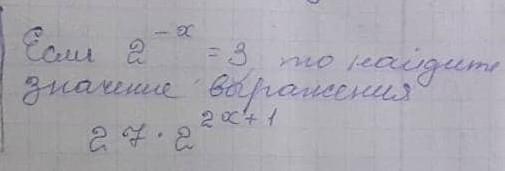 Если 2^{-x} = 3 то найдите
значение выражения
27 · 2^{2x+1}